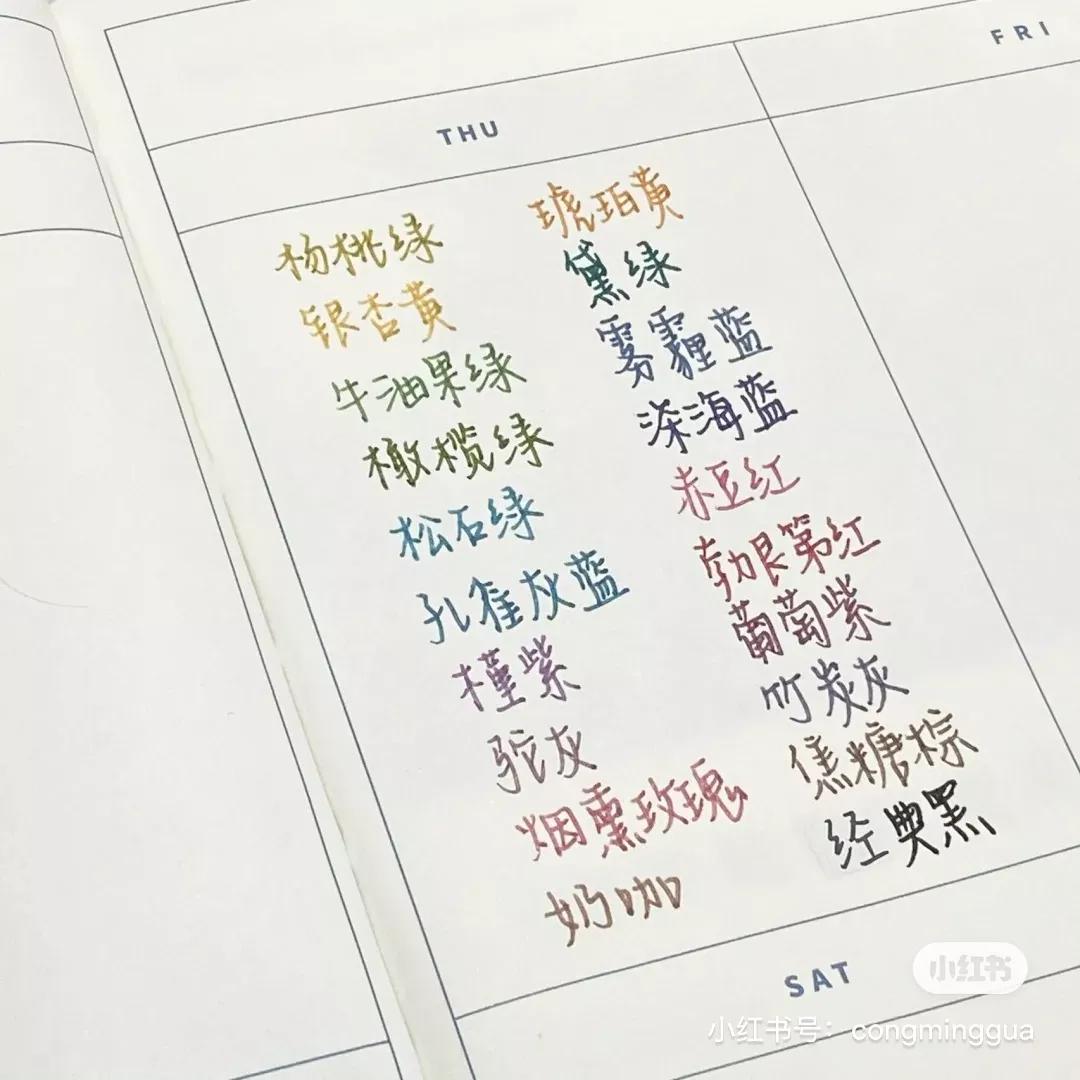 THU
FRI
杨桃绿
银杏黄
牛油果绿
橄榄绿
松石绿
孔雀灰蓝
槿紫
驼灰
烟熏玫瑰
奶咖
琥珀黄
黛绿
雾霾蓝
深海蓝
赤豆红
勃艮第红
葡萄紫
竹炭灰
焦糖棕
经典黑
SAT
小红书
小红书号：congminggua